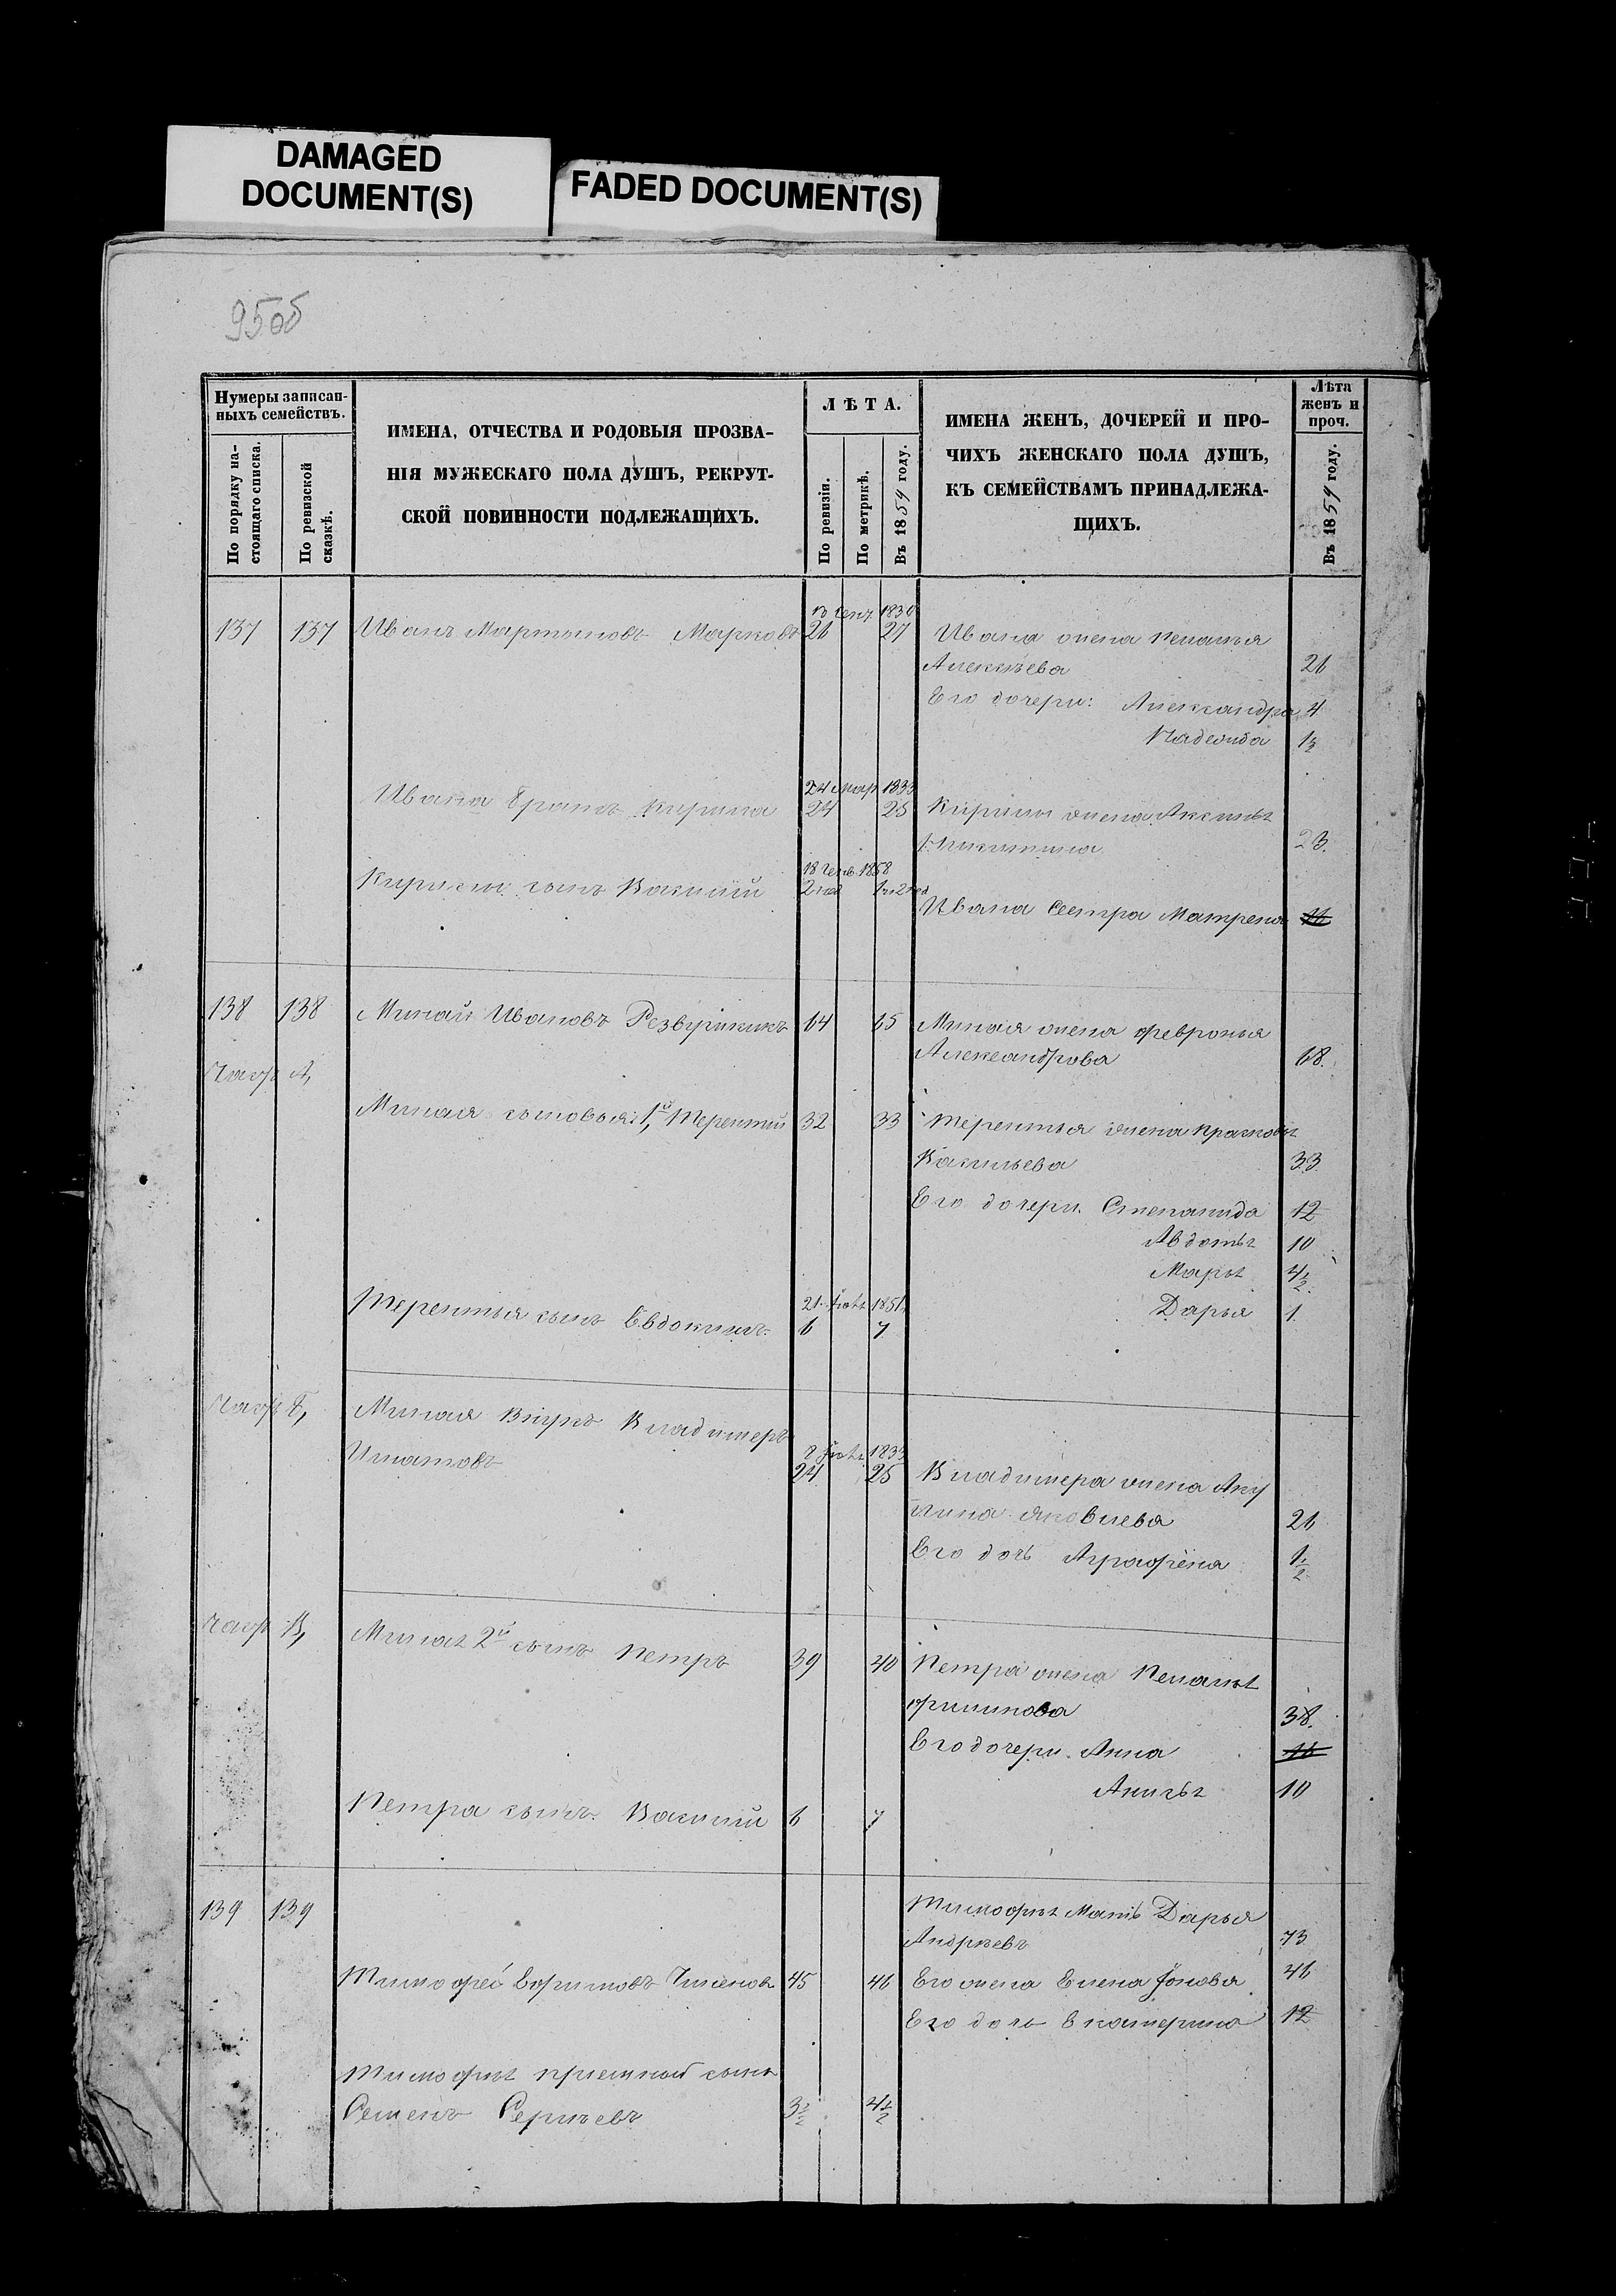 DAMAGED
DOCUMENT(S)
FADED DOCUMENT(S)
95об
Нумеры записан-
ныхъ семействъ.
По порядку на-
стоящаго списка.
По ревизской
сказкѣ.
ИМЕНА, ОТЧЕСТВА И РОДОВЫЯ ПРОЗВА-
НІЯ МУЖЕСКАГО ПОЛА ДУШЪ, РЕКРУТ-
СКОЙ ПОВИННОСТИ ПОДЛЕЖАЩИХЪ.
ЛѢТА.
По ревизіи.
По метрикѣ.
Въ 1859 году.
ИМЕНА ЖЕНЪ, ДОЧЕРЕЙ И ПРО-
ЧИХЪ ЖЕНСКАГО ПОЛА ДУШЪ,
КЪ СЕМЕЙСТВАМЪ ПРИНАДЛЕЖА-
ЩИХЪ.
Лѣта
женъ и
проч.
Въ 1859 году.
137 137 Иванъ Мартыновъ Марковъ 26 27 Ивана жена Меланья
Алексѣева 26
Его дочери: Александра 4
24 мар 1833
Ивана братъ Кирила 24 25 Кирилы жена Аксинья
Никитина 23.
Кирилы сынъ Василій
Ивана сестра Матрена 16
138 138 Минай Ивановъ 64 65 Миная жена Февронья
Александрова 68.
А,
Миная сыновья: 1й, Терентий 32 33 Терентья жена Прасковья
Васильева 33
Его дочери. Степанида 12
Авдотья 10
Марья 4½
Дарья 1
Терентья сынъ Евдокимъ. 6 7
Б,
Миная внукъ Владимеръ
Игнатовъ 24 25 Владимера жена Аку
лина Яковлева 26
Его дочь Аграфена 1½
В,
Миная 2й сынъ Петръ 39 40 Петра жена Меланья
Филипова 38.
Его дочери. Анна 16
10
Петра сынъ. Василій 6 7
139 139 Тимофея мать Дарья
Андреева 73
Тимофей Ефимовъ 45 46 Его жена Елена 46
Его дочь Екатерина 12
Тимофея приемный сынъ
Семенъ Сергѣевъ 3½ 4½